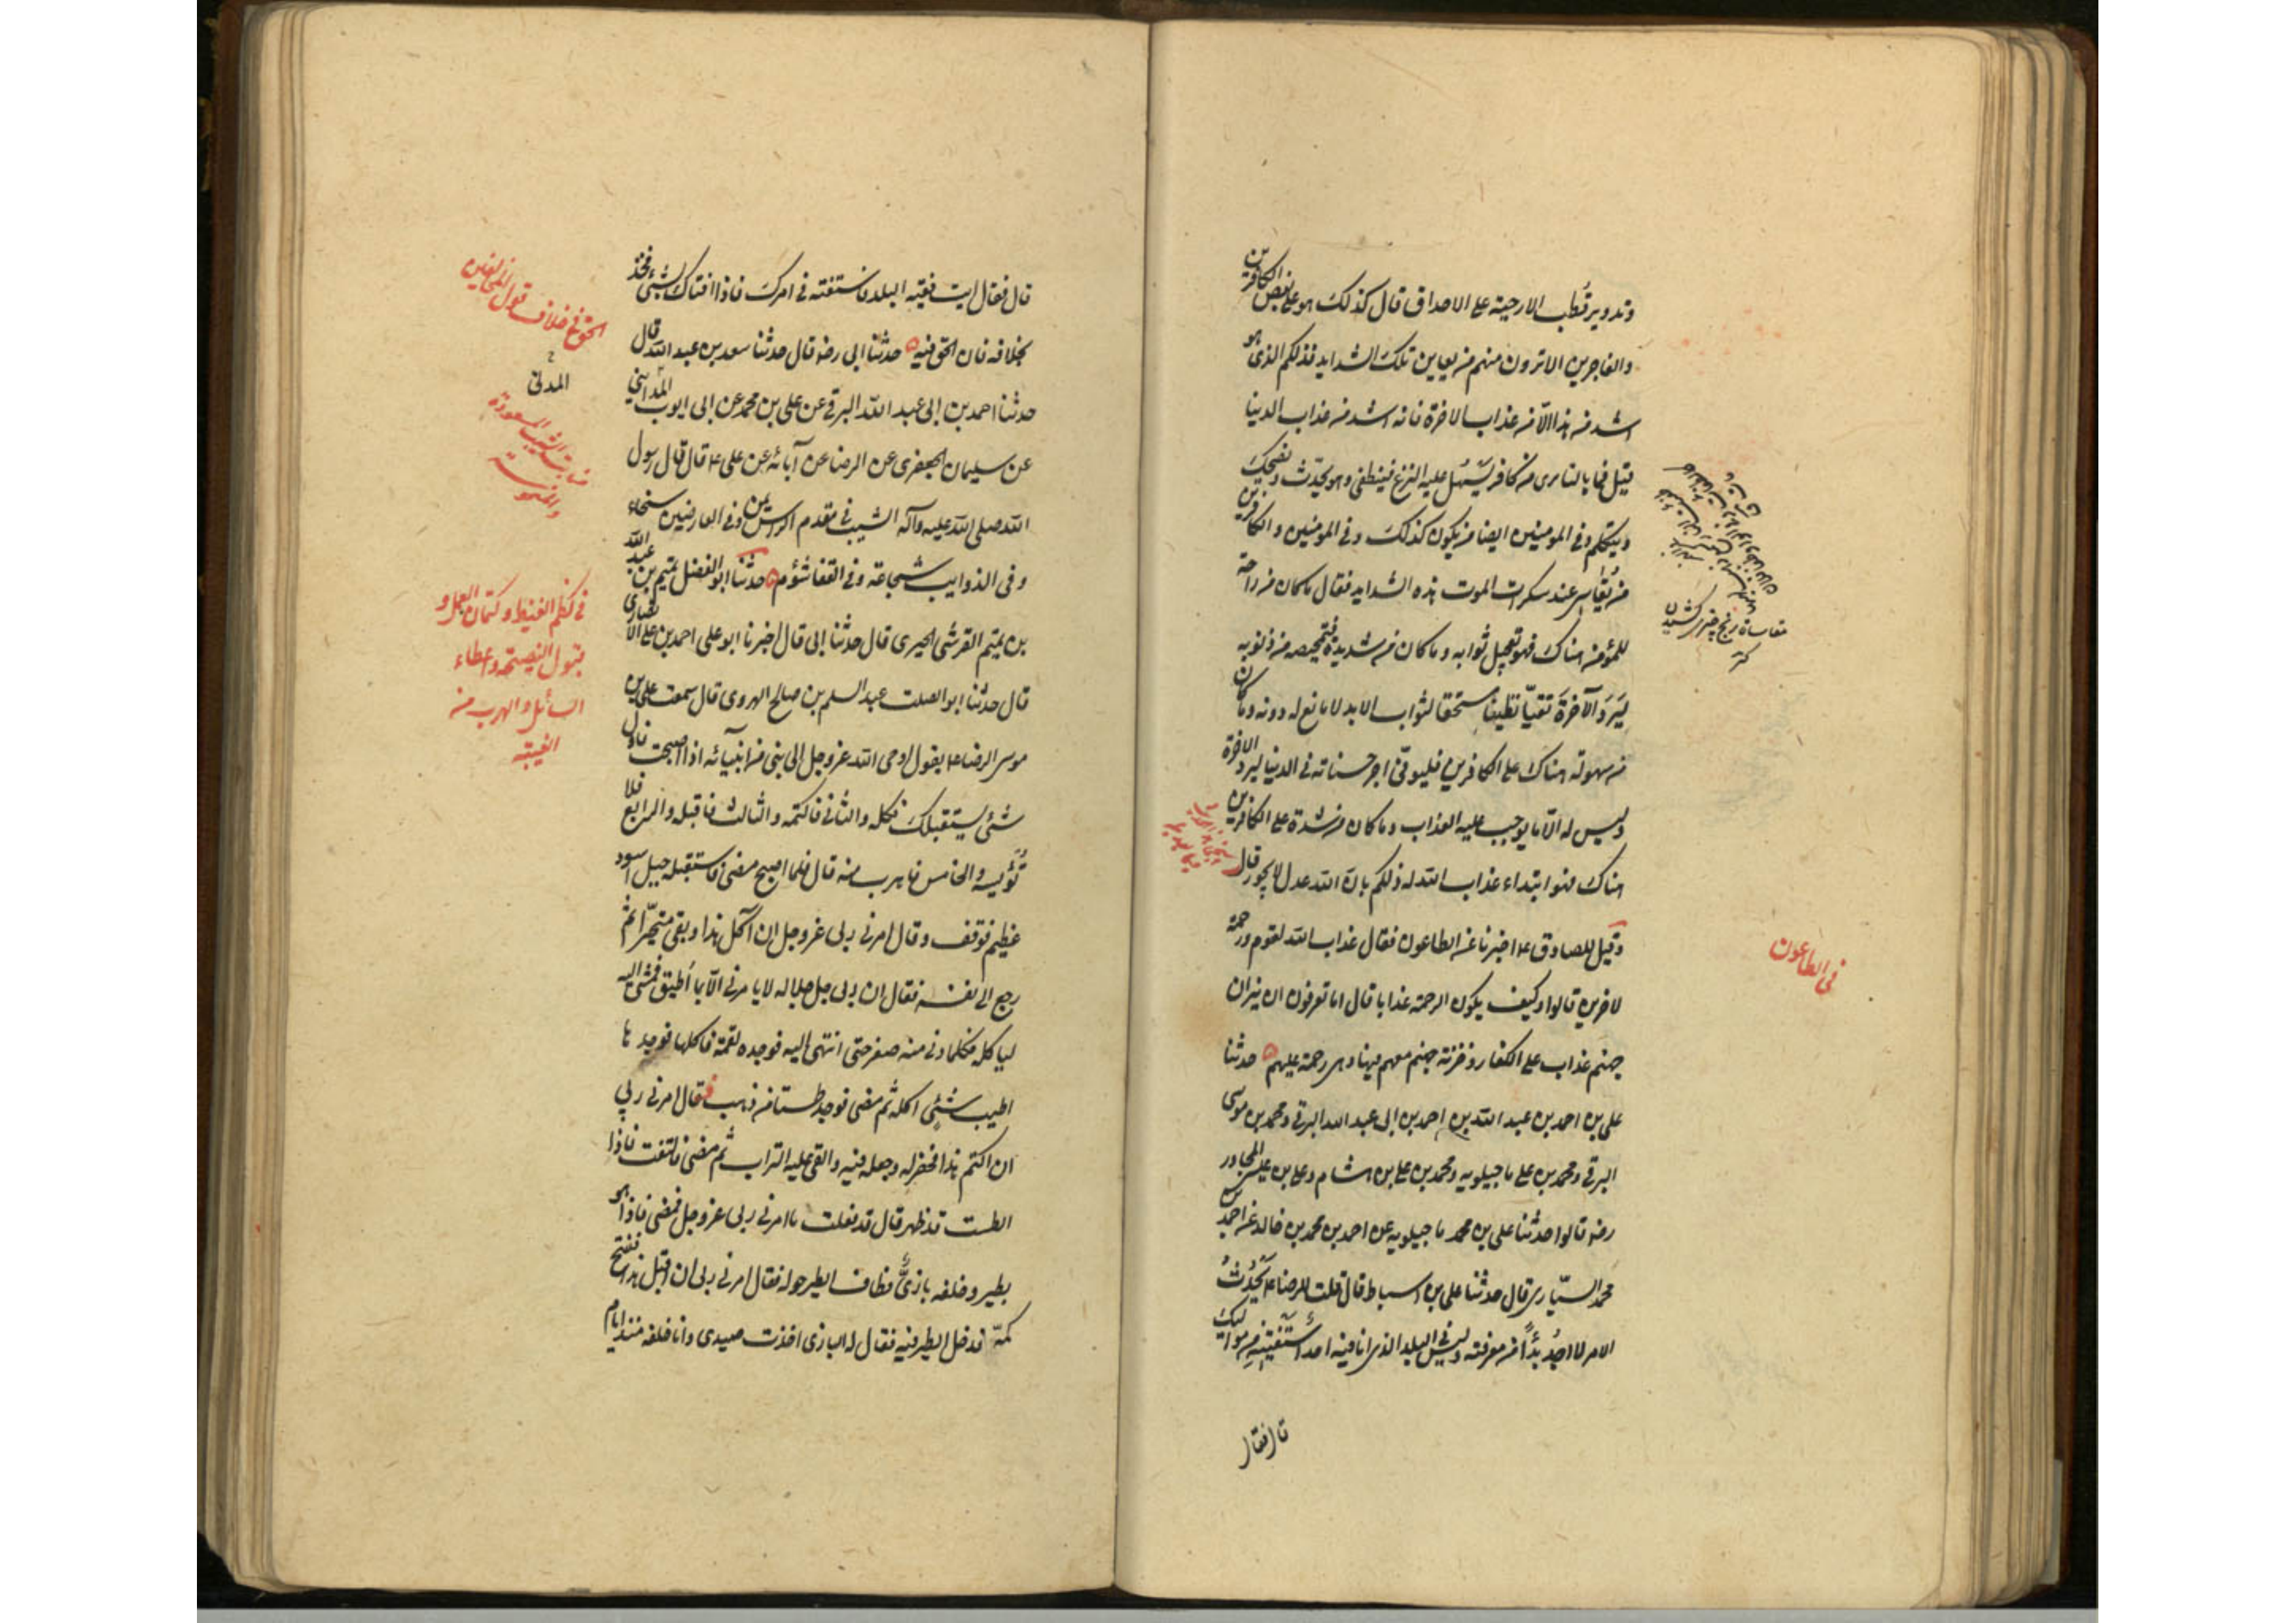 وتدوير قُطب الارحية على الاحداق قال كذلك هو على بعض الكافرين
والفاجرين الاترون منهم من يعاين تلك الشدايد فذلكم الذى هو
اشد من هذا الّا من عذاب الاخرة فانه اشد من عذاب الدنيا
قيل فما بالنا نرى من كافر يسّهل عليه النزع فينطفى وهو يحدّث ويضحك
ويتكلم وفى المومنين ايضا من يكون كذلك وفى المومنين والكافرين
من يُقاسى عند سكرات الموت هذه الشدايد فقال ما كان من راحة
للمؤمن هناك فهو تعجيل ثوابه وما كان من شديدة فتمحيصه من ذنوبه
ليَرِدَ الآخرَةَ نقيّا نظيفا مستحقا لثواب الابد لا مانع له دونه وما كان
من سهولة هناك على الكافرين فليوفّى اجر حسناته فى الدنيا ليرد الاخرة
وليس له الّا ما يوجب عليه العذاب وما كان من شدة على الكافرين
هناك فهو ابتداء عذاب الله له ذلكم بانّ الله عدل لا يجور قال
وقيل للصادق ع اخبرنا عن الطاعون فقال عذاب الله لقوم ورحمة
لاخرين قالوا وكيف يكون الرحمة عذابا قال اما تعرفون ان نيران
جهنم عذاب على الكفار وخزنة جهنم معهم فيها وهى رحمة عليهم حدثنا
على بن احمد بن عبد الله بن احمد بن ابى عبد الله البرقى ومحمد بن موسى
البرقى ومحمد بن على ماجيلويه ومحمد بن على بن هشام وعلى بن عيسى المجاور
رضه قالوا حدثنا على بن محمد ماجيلويه عن احمد بن محمد بن خالد عن احمد بن
محمد السيّارى قال حدثنا على بن اسباط قال قلت للرضا ع يَحْدُثُ
الامر لا اجدُ بُدّاً من معرفته وليس فى البلد الذى انا فيه احد أستفتيه من مواليك
قال فقال
فى الطاعون
مقاساة رنج چيزى كشيدن
كنز
قال فقال ايت فقيه البلد فاستفته فى امرك فاذا افتاك بشئ فخذ
بخلافه فان الحق فيه حدثنا ابى رضه قال حدثنا سعد بن عبد الله قال
حدثنا احمد بن ابى عبد الله البرقى عن على بن محمد عن ابى ايوب المدايني
عن سليمان الجعفرى عن الرضا عن آبائه عن على ع قال قال رسول
الله صلى الله عليه وآله الشيب فى مقدم الراس يمن وفى العارضين سخاء
وفى الذوايب شجاعة وفى القفا شؤم حدثنا ابو الفضل تميم بن عبد الله
بن تميم القرشى الحيرى قال حدثنا ابى قال اخبرنا ابو على احمد بن على الانصارى
قال حدثنا ابو الصلت عبد السلم بن صالح الهروى قال سمعت على بن
موسى الرضا ع يقول اوحى الله عز وجل الى نبى من انبيآئه اذا اصبحت فاول
شئى يستقبلك فكله والثانى فاكتمه والثالث فاقبله والرابع فلا
تُؤيسه والخامس فاهرب منه قال فلما اصبح مضى فاستقبله جبل اسود
عظيم فوقف وقال امرنى ربى عز وجل ان آكل هذا وبقى متحيّرا ثم
رجع الى نفسه فقال ان ربى جل جلاله لا يامرنى الّا بما اُطيق فمشى اليه
لياكله فكلما دنى منه صغر حتى انتهى اليه فوجده لقمة فاكلها فوجدها
اطيب شئى اكله ثم مضى فوجد طستا من ذهب فقال امرنى ربي
ان اكتم هذا فحفر له وجعله فيه والقى عليه التراب ثم مضى فالتفت فاذا
الطست قد ظهر قال قد فعلت ما امرنى ربى عز وجل فمضى فاذا هو
بطير وخلفه بازىٌّ فطاف الطير حوله فقال امرنى ربى ان اقبل هذا ففتح
كمّه فدخل الطير فيه فقال له البازى اخذت صيدى وانا خلفه منذ ايام
الحق فى خلاف قول المخالفين
المدنى
فى كظم الغيظ وكتمان العمل و
قبول النصيحة واعطاء
السائل والهرب من
الغيبة